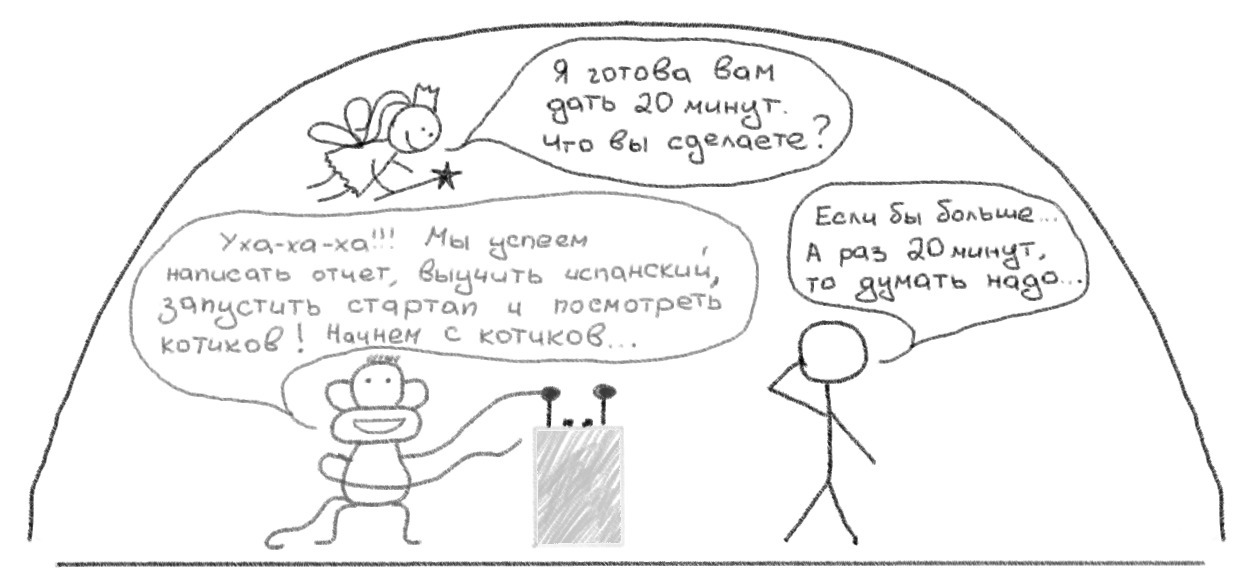 Я готова вам
дать 20 минут.
Что вы сделаете?
Уха-ха-ха!!! Мы успеем
написать отчет, выучить испанский,
запустить стартап и посмотреть
котиков! Начнем с котиков...
Если бы больше...
А раз 20 минут,
то думать надо...